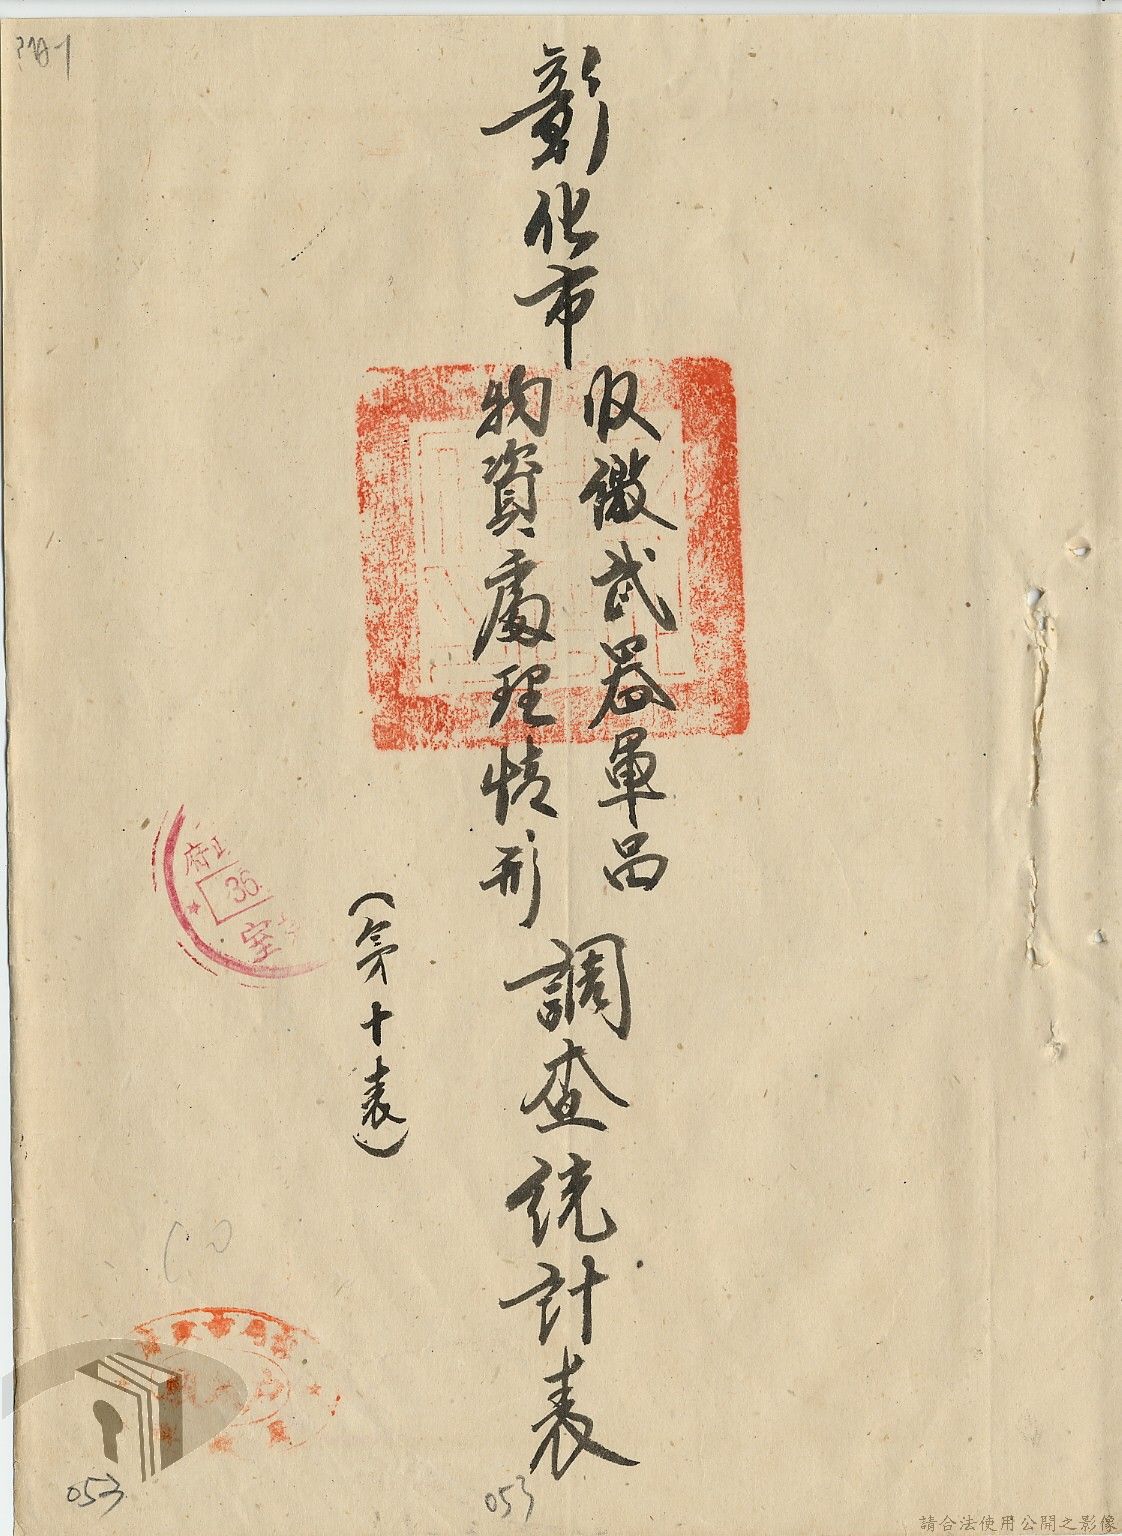 彰化市
收繳武器軍品
物資處理情形
調查統計表
(第十表)
府
36
室
053
053
請合法使用公開之影像